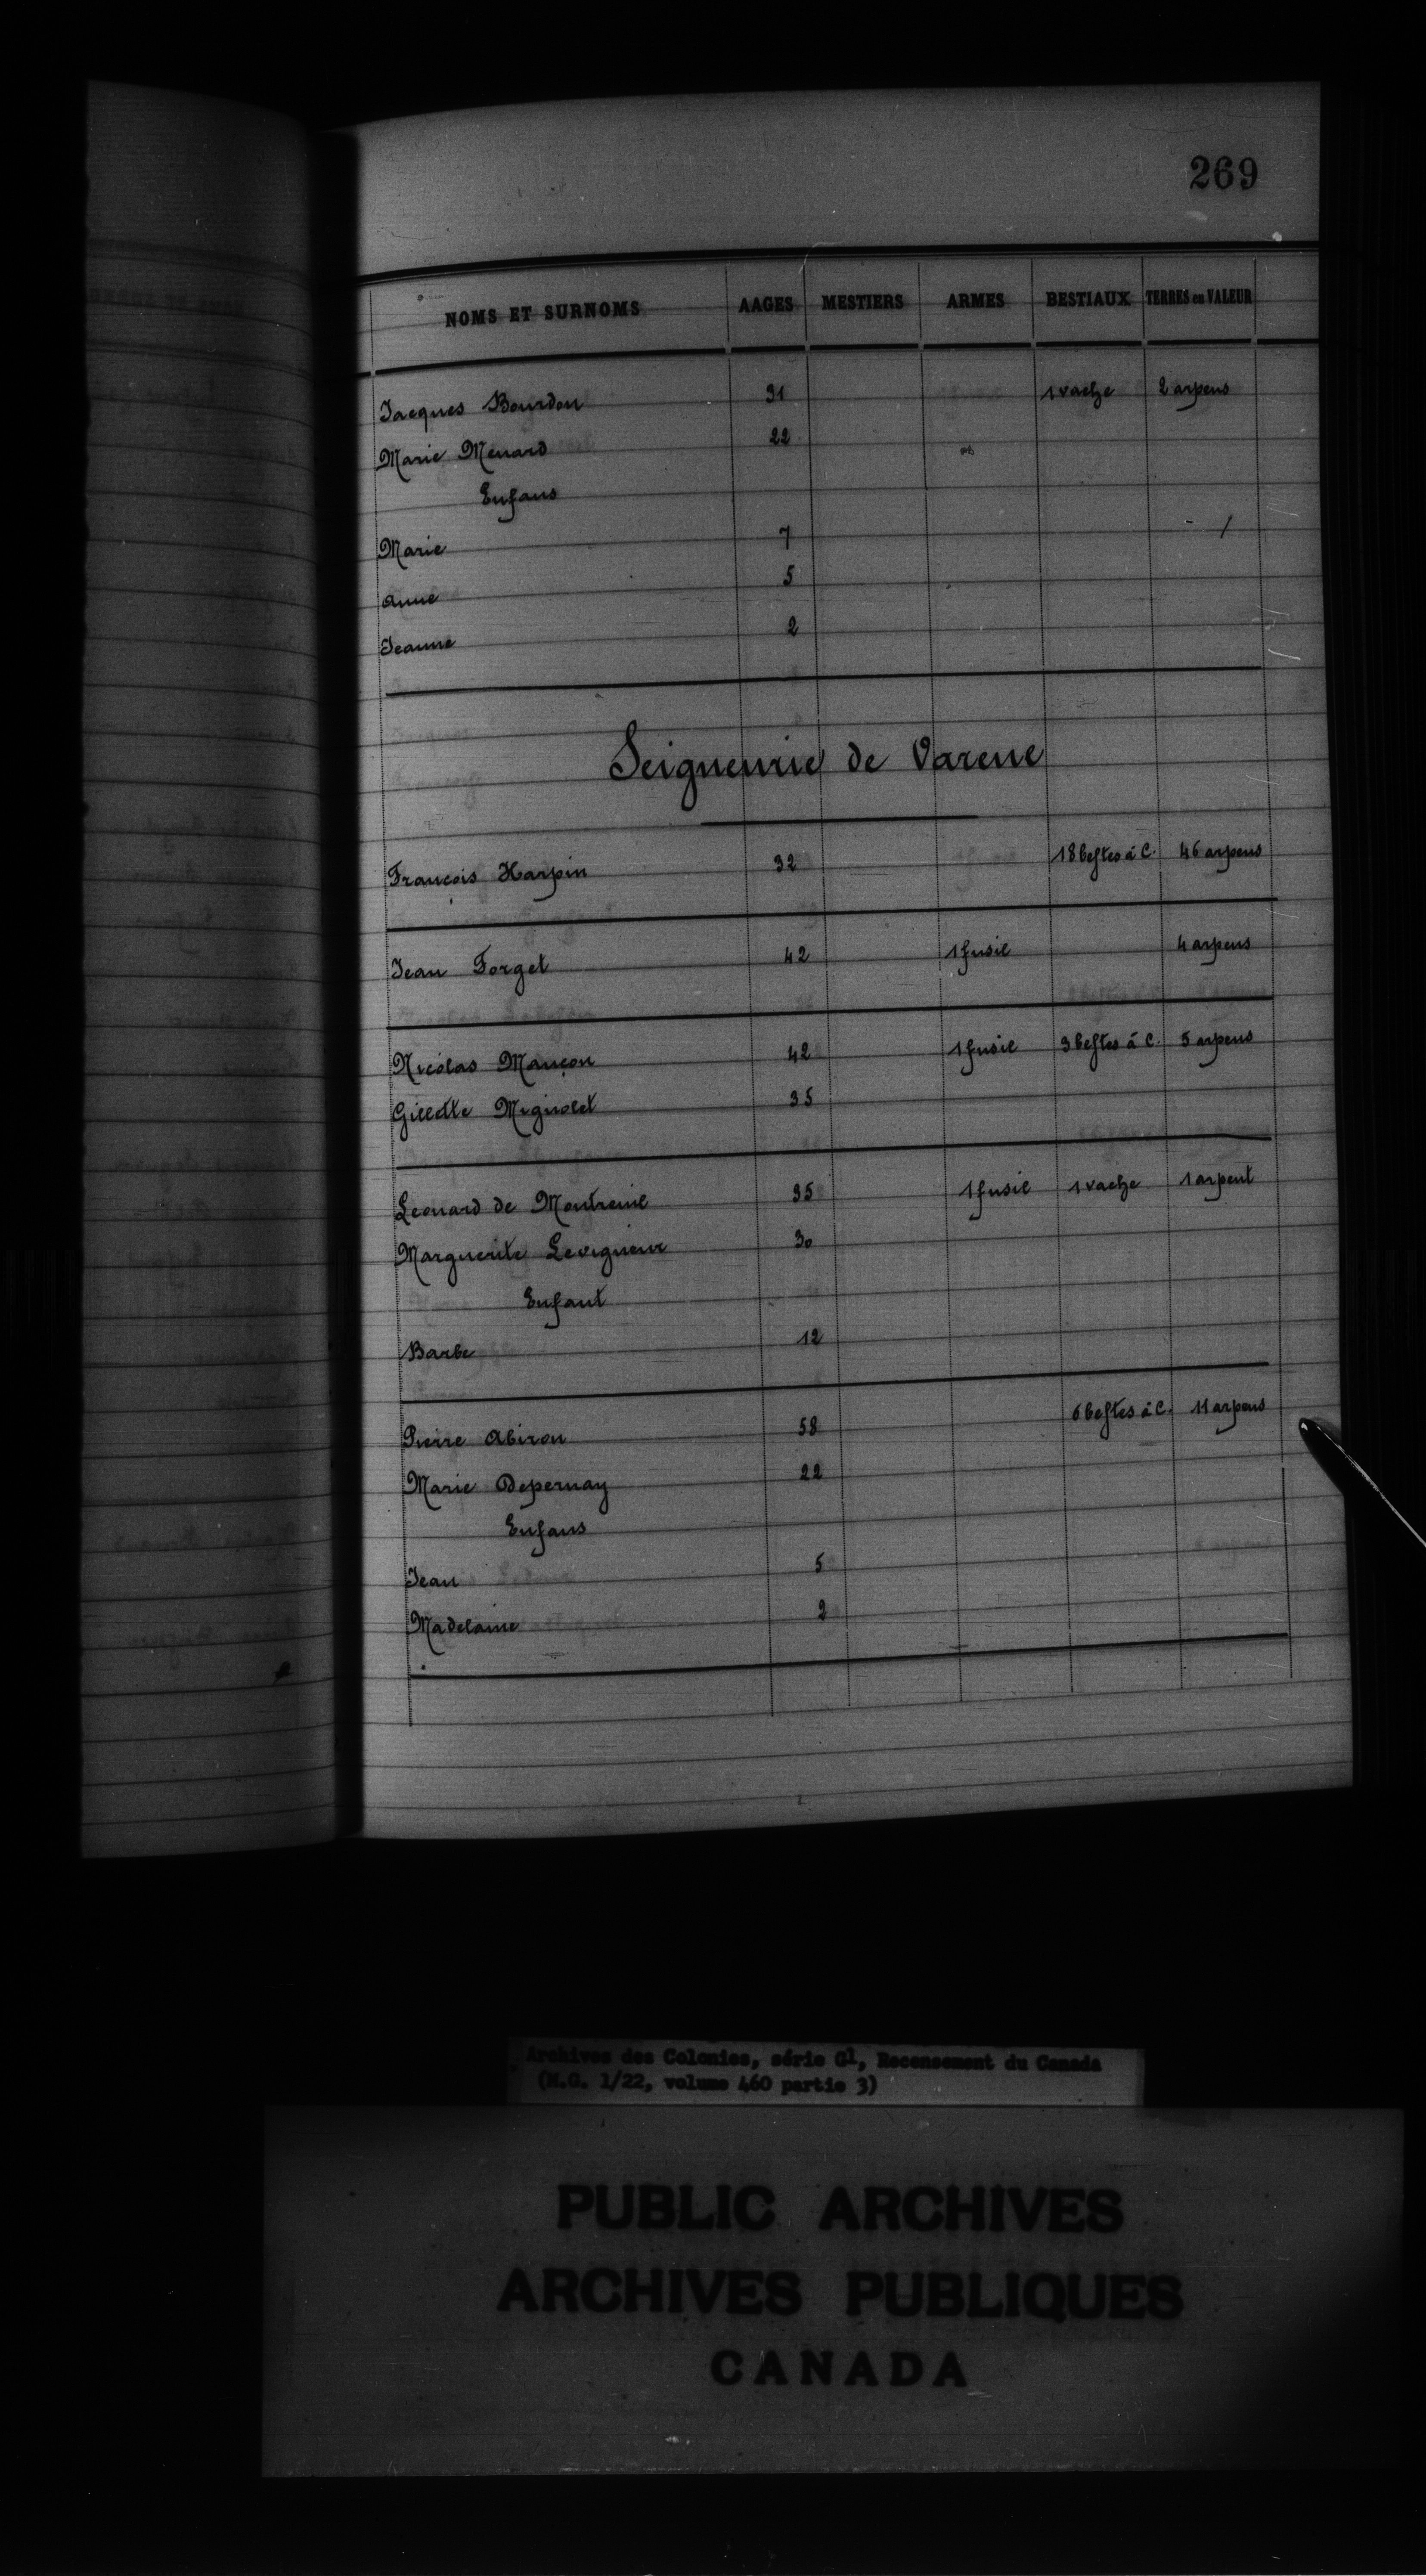 269
NOMS ET SURNOMS AAGES MESTIERS ARMES BESTIAUX TERRES en VALEUR
Jacques Bourdon 31 1 vache 2 arpens
Marie Menard 22
Enfans
Marie 7
Anne 5
Jeanne 2
Seigneurie de Varene
François Harpin 32 18 bestes à C. 46 arpens
Jean Forget 42 1 fusil 4 arpens
Nicolas Mançon 42 1 fusil 3 bestes à C. 5 arpens
Gillette Mignolet 35
Leonard de Montreuil 35 1 fusil 1 vache 1 arpent
Marguerite Levigneur 30
Enfant
Barbe 12
Pierre Abiron 58 6 bestes à C. 11 arpens
Marie Depernay 22
Enfans
Jean 5
Madelaine 2
Archives des Colonies, série G1, Recensement du Canada
(M.G. 1/22, volume 460 partie 3)
PUBLIC ARCHIVES
ARCHIVES PUBLIQUES
CANADA